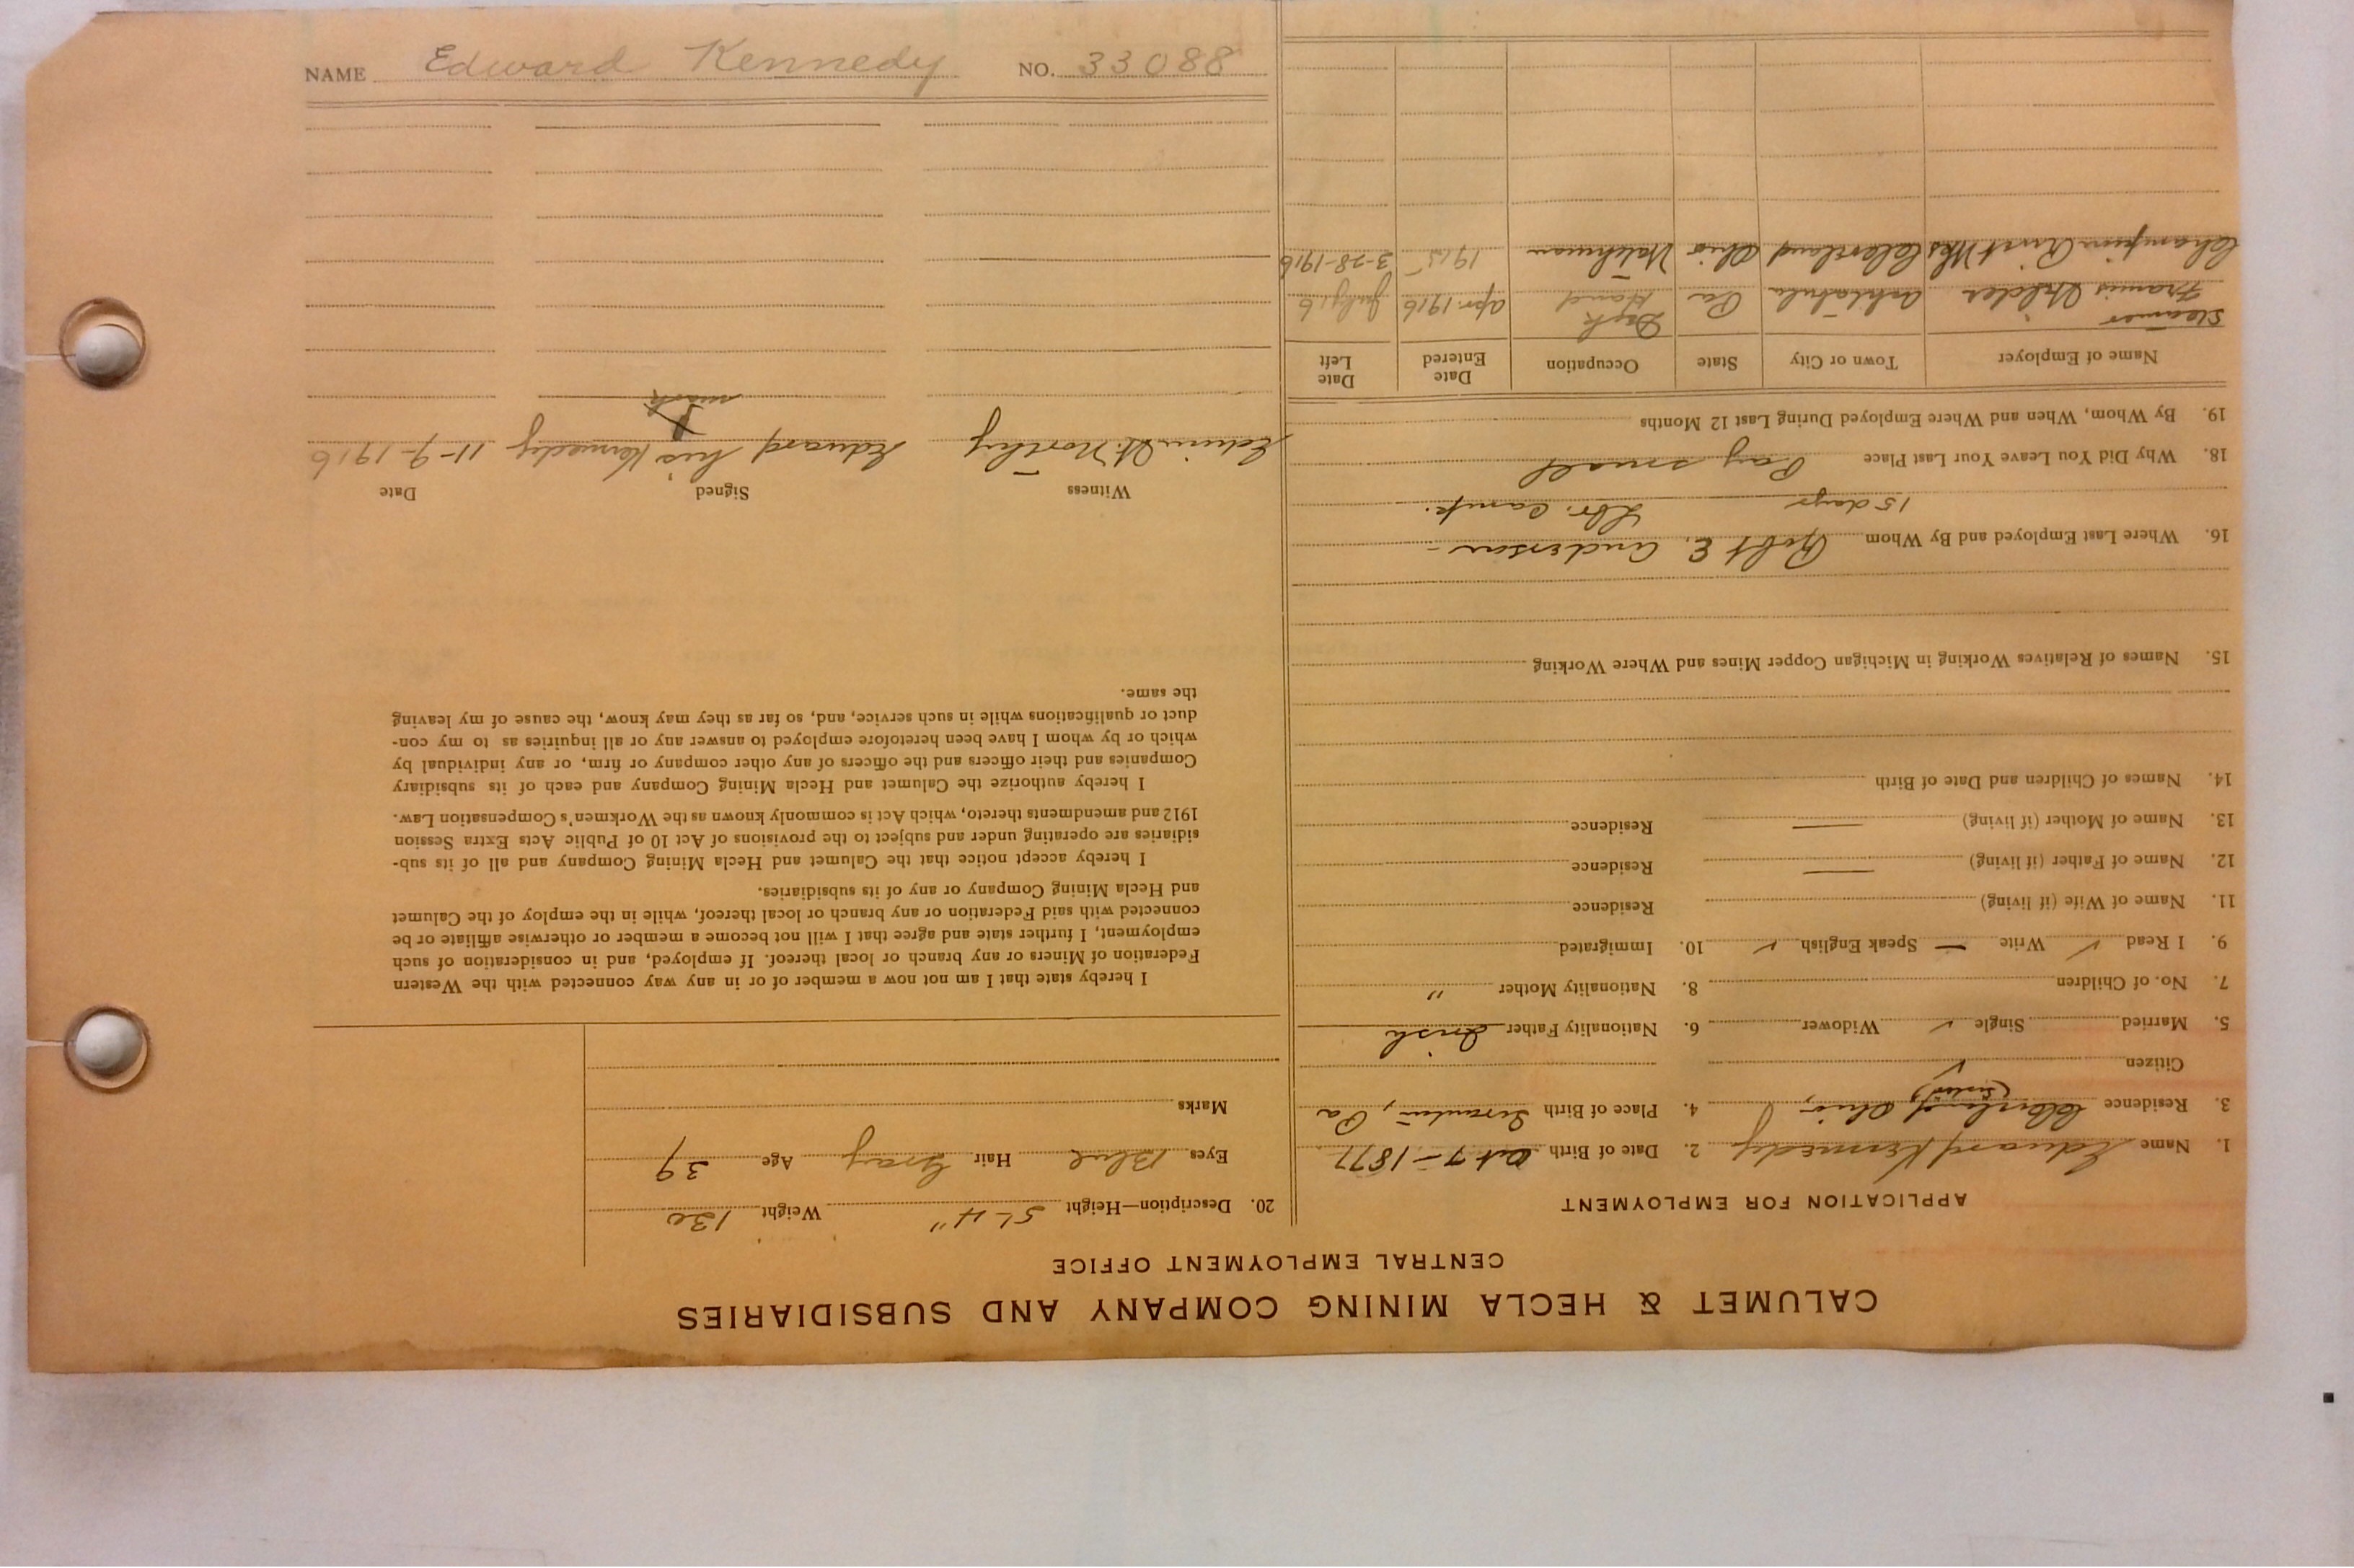 NAME Edward Kennedy NO. 33088
CALUMET & HECLA MINING COMPANY AND SUBSIDIARIES
CENTRAL EMPLOYMENT OFFICE
APPLICATION FOR EMPLOYMENT
1. Name Edward Kennedy 2. Date of Birth Oct 7-1877
3. Residence Cleveland Ohio, 4. Place of Birth Scranton, Pa
Citizen ✓
5. Married Single ✓ Widower 6. Nationality Father Irish
7. No. of Children 8. Nationality Mother "
9. I Read ✓ Write — Speak English ✓ 10. Immigrated
11. Name of Wife (if living) Residence
12. Name of Father (if living) — Residence
13. Name of Mother (if living) — Residence
14. Names of Children and Date of Birth
15. Names of Relatives Working in Michigan Copper Mines and Where Working
16. Where Last Employed and By Whom Robt E. Anderson -
15 days Lbr. Camp.
18. Why Did You Leave Your Last Place Pay small
19. By Whom, When and Where Employed During Last 12 Months
Name of Employer Town or City State Occupation Date Entered Date Left
Steamer Francis Widlar Ashtabula Pa Deck Hand Apr. 1916 July 16
Champion Rivet Wks Cleveland Ohio Watchman 1915 3-28-1916
20. Description—Height 5'-4" Weight 130
Eyes Blue Hair Gray Age 39
Marks
I hereby state that I am not now a member of or in any way connected with the Western
Federation of Miners or any branch or local thereof. If employed, and in consideration of such
employment, I further state and agree that I will not become a member or otherwise affiliate or be
connected with said Federation or any branch or local thereof, while in the employ of the Calumet
and Hecla Mining Company or any of its subsidiaries.
I hereby accept notice that the Calumet and Hecla Mining Company and all of its sub-
sidiaries are operating under and subject to the provisions of Act 10 of Public Acts Extra Session
1912 and amendments thereto, which Act is commonly known as the Workmen's Compensation Law.
I hereby authorize the Calumet and Hecla Mining Company and each of its subsidiary
Companies and their officers and the officers of any other company or firm, or any individual by
which or by whom I have been heretofore employed to answer any or all inquiries as to my con-
duct or qualifications while in such service, and, so far as they may know, the cause of my leaving
the same.
Witness Signed Date
Edwin H. Northey Edward his Kennedy 11-9-1916
X
mark